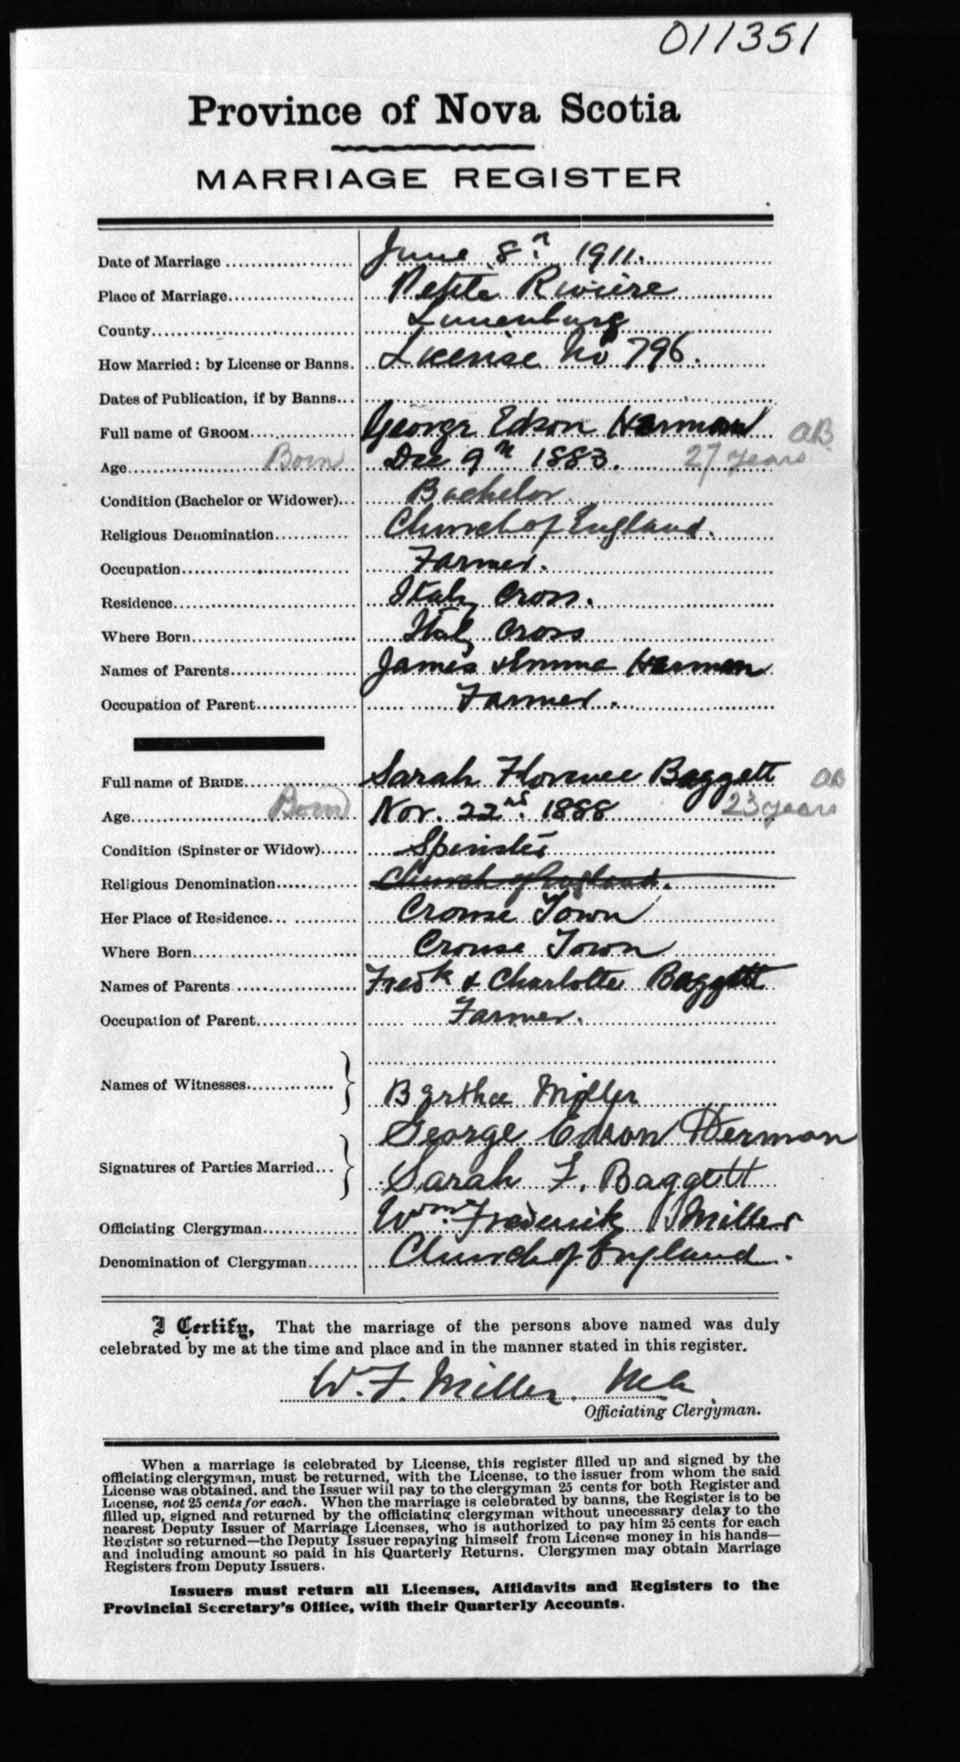 011351
Province of Nova Scotia
MARRIAGE REGISTER
Date of Marriage June 8th 1911.
Place of Marriage Petite Riviere
County Lunenburg
How Married: by License or Banns. License No 796.
Dates of Publication, if by Banns
Full name of GROOM George Edson Herman OB
Age Born Dec 9th 1883. 27 years
Condition (Bachelor or Widower) Bachelor.
Religious Denomination Church of England.
Occupation Farmer.
Residence Italy Cross.
Where Born Italy Cross
Names of Parents James & Emma Herman
Occupation of Parent Farmer.
Full name of BRIDE Sarah Florence Baggett OB
Age Born Nov. 22nd. 1888 23 years
Condition (Spinster or Widow) Spinster
Religious Denomination Church of England.
Her Place of Residence Crouse Town
Where Born Crouse Town
Names of Parents Fredk & Charlotte Baggett
Occupation of Parent Farmer.
Names of Witnesses Bertha Miller
Signatures of Parties Married George Edson Herman
Sarah F. Baggett
Officiating Clergyman Wm. Frederick Miller
Denomination of Clergyman Church of England.
I Certify, That the marriage of the persons above named was duly
celebrated by me at the time and place and in the manner stated in this register.
W. F. Miller.
Officiating Clergyman.
When a marriage is celebrated by License, this register filled up and signed by the
officiating clergyman, must be returned, with the License, to the issuer from whom the said
License was obtained, and the Issuer will pay to the clergyman 25 cents for both Register and
License, not 25 cents for each. When the marriage is celebrated by banns, the Register is to be
filled up, signed and returned by the officiating clergyman without unecessary delay to the
nearest Deputy Issuer of Marriage Licenses, who is authorized to pay him 25 cents for each
Register so returned—the Deputy Issuer repaying himself from License money in his hands—
and including amount so paid in his Quarterly Returns. Clergymen may obtain Marriage
Registers from Deputy Issuers.
Issuers must return all Licenses, Affidavits and Registers to the
Provincial Secretary's Office, with their Quarterly Accounts.